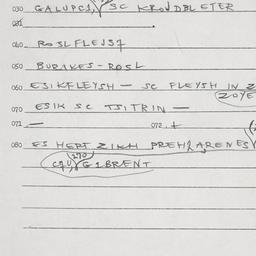 030 GALUPCI, SC KROJDBLETER
031 .
040 ROSLFLEJSH
050 BURAKES-ROSL
060 ESIKFLEYSH - SC FLEYSH IN
ZOYE
070 ESIK SC TSITRIN -
071 - 072 +
080 ES HERT ZIKH PREH2ARENES
(270)
G1BRENT